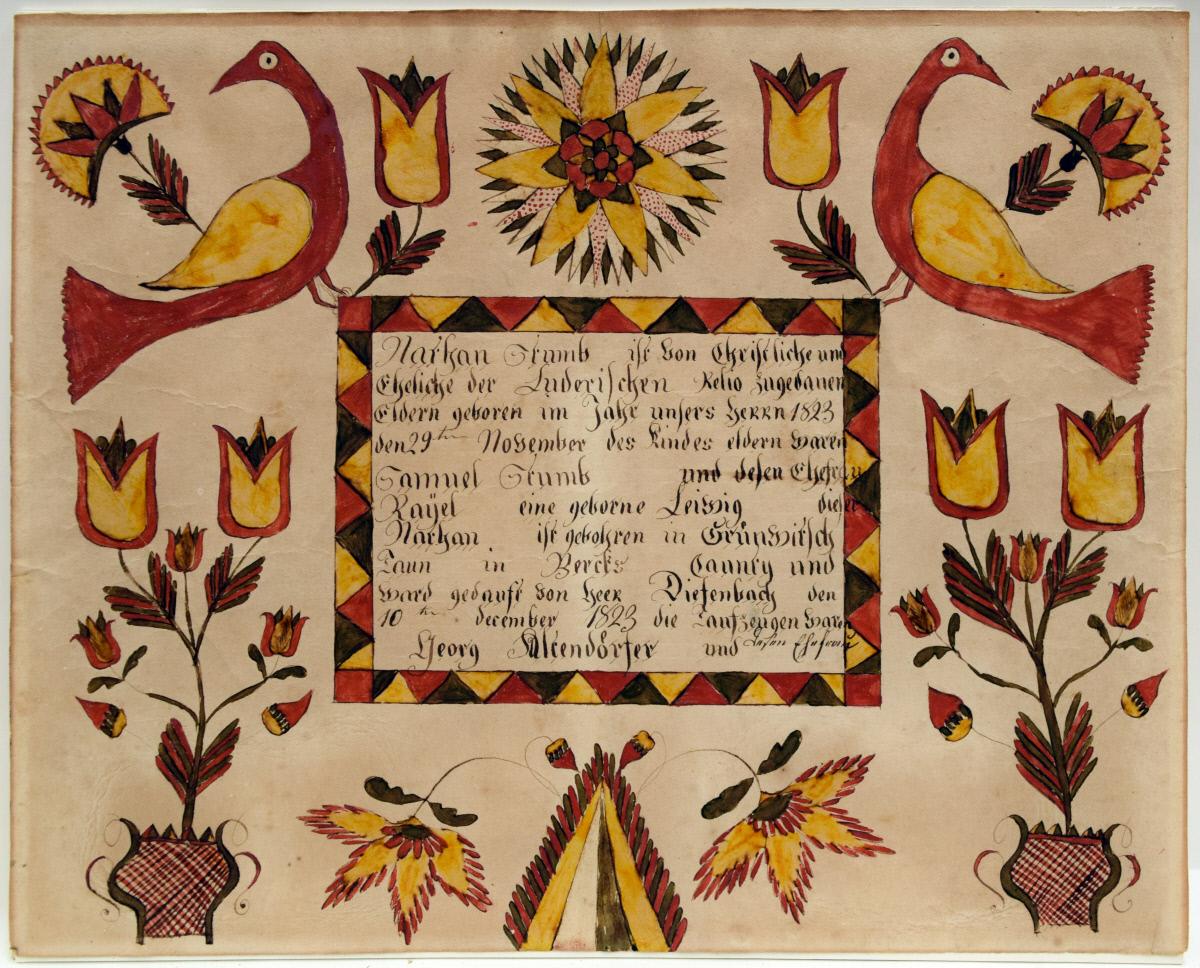 Nathan Stumb ist von Christliche und
Eheliche der Luderischen Relio zugedauen
Eldern geboren im Jahr unsers Herrn 1823
den 29ten November des Kindes eldern waren
Samuel Stumb und desen Ehefrau
Rayel eine geborne Leiwig dieser
Nathan ist gebohren in Grünwitsch
Taun in Bercks Caunty und
ward gedauft von Heer Diefenbach den
10ten december 1823 die Taufzeugen waren
Georg Altendörfer und desen Ehefrau